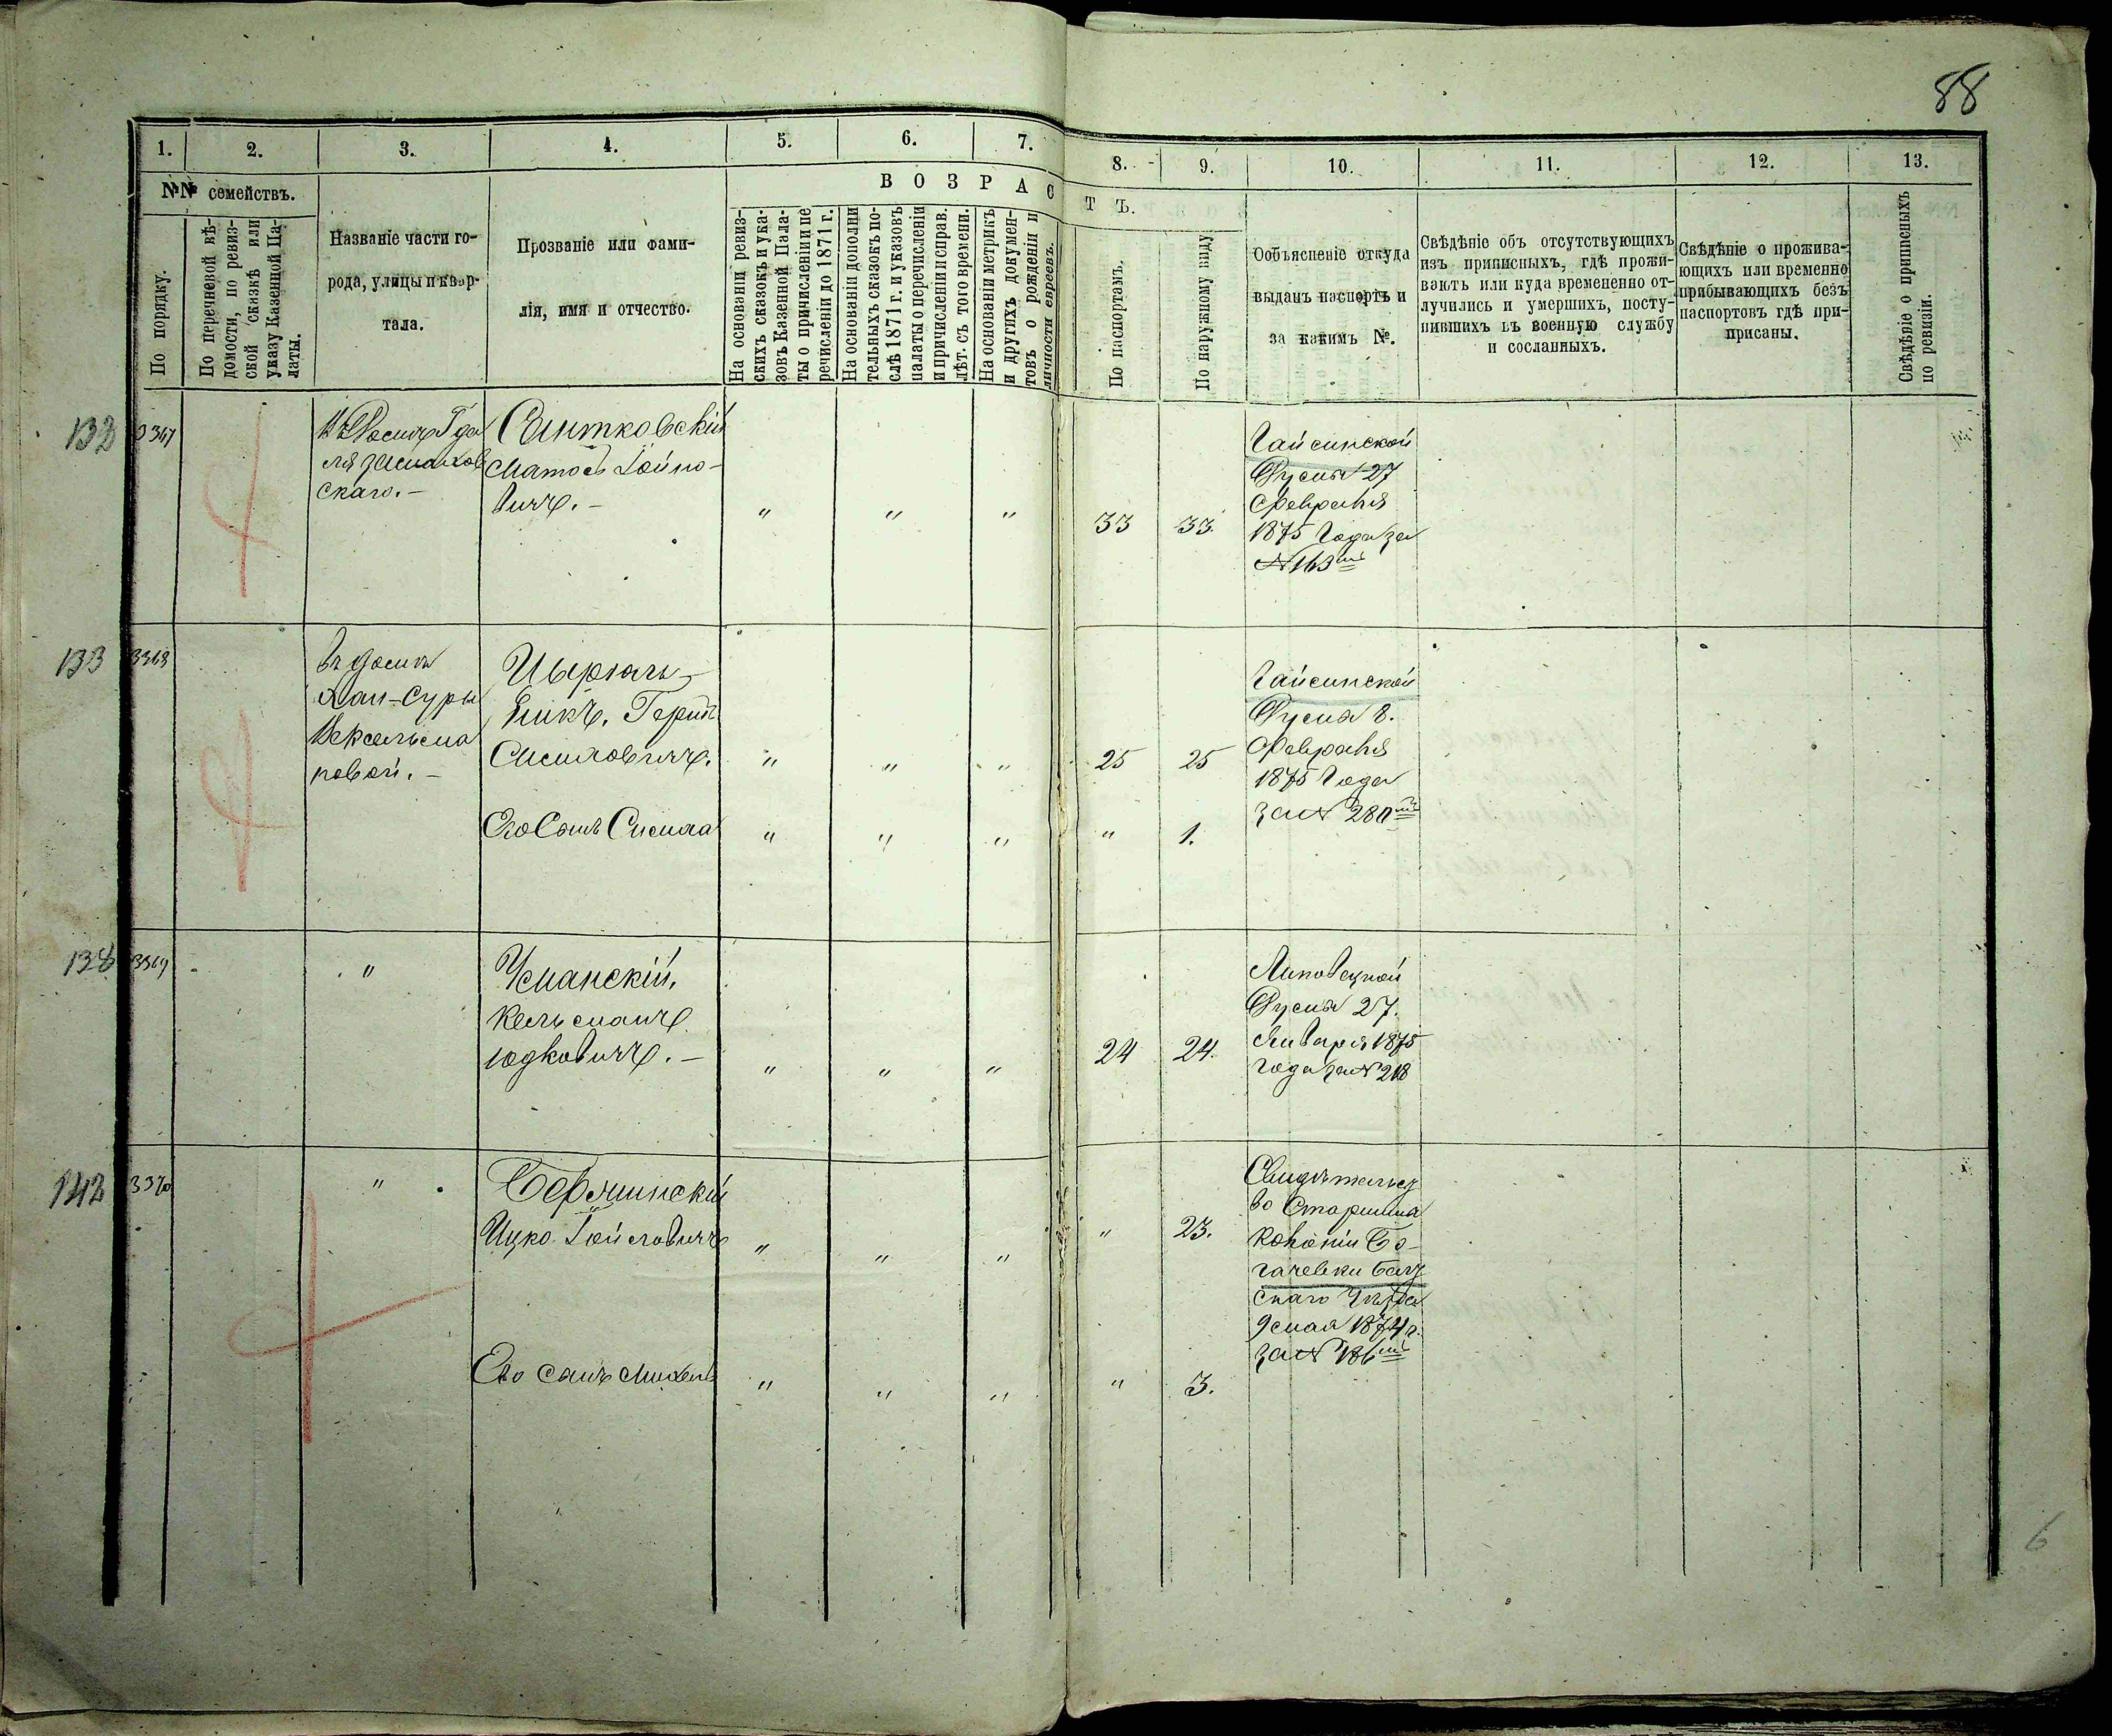 88
1. 2. 3. 4. 5. 6. 7. 8. 9. 10. 11. 12. 13.
№№ семействъ.
По порядку.
По перечневой вѣ-
домости, по ревиз-
ской сказкѣ или
указу Казенной Па-
латы.
Названіе части го-
рода, улицы и квар-
тала.
Прозваніе или фами-
лія, имя и отчество.
ВОЗРАСТЪ.
На основаніи ревиз-
скихъ сказокъ и ука-
зовъ Казенной Пала-
ты о причисленіи и пе
речисленіи до 1871 г.
На основаніи дополни
тельныхъ сказокъ по-
слѣ 1871 г. и указовъ
палаты о перечисленіи
и причисленіи исправ.
лѣт. съ того времени.
На основаніи метрикъ
и другихъ докумен-
товъ о рожденіи и
личности евреевъ.
По паспортамъ.
По наружному виду
Объясненіе откуда
выданъ паспортъ и
за какимъ №.
Свѣдѣніе объ отсутствующихъ
изъ приписныхъ, гдѣ прожи-
ваютъ или куда времененно от-
лучились и умершихъ, посту-
пившихъ въ военную службу
и сосланныхъ.
Свѣдѣніе о прожива-
ющихъ или временно
прибывающихъ безъ
паспортовъ гдѣ при-
присаны.
Свѣдѣніе о приписныхъ
по ревизіи.
132
3367
скаго.-
вичъ.-
" " " 33 33.
Гайсинской
Думы 27
Февраля
1875 Года за
№ 163
133
3368
въ домѣ
Хаи-Суры
Вексельма
новой.-
Гершъ
Сисиловичъ.
" " " 25 25
Его Сынъ
" " " " 1.
Гайсинской
Думы 8.
Февраля
1875 Года
за № 280
138
3369
"
Уманскій,
Кельманъ
Юдковичъ.-
" " " 24 24.
Липовецкой
Думы 27.
Января 1875
года за № 218
142
3370
"
Ицко
" " " " 23.
Его сынъ Михель
" " " " 3.
Свидѣтельст
во Старшины
Колоніи Бо-
гачевки Балт
скаго Уѣзда
9 мая 1874 г.
за № 186
6